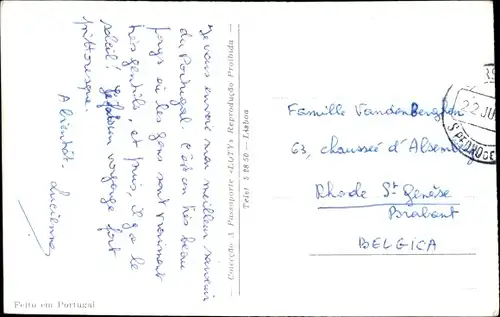 Je vous envoie mon meilleur souvenir
du Portugal. C'est un très beau
pays où les gens sont vraiment
très gentils, et puis, il y a le
soleil! voyage fort
pittoresque.
A bientôt. Lucienne
Colecção Passaporte «LOTY» Reprodução Proibida
Telef 5 28 50 - Lisboa
Feito em Portugal
22 JU
S PEDRO DE
Famille Vandenberghen
63, chaussée d'Alsemberg
Rhode St Genèse
Brabant
BELGICA